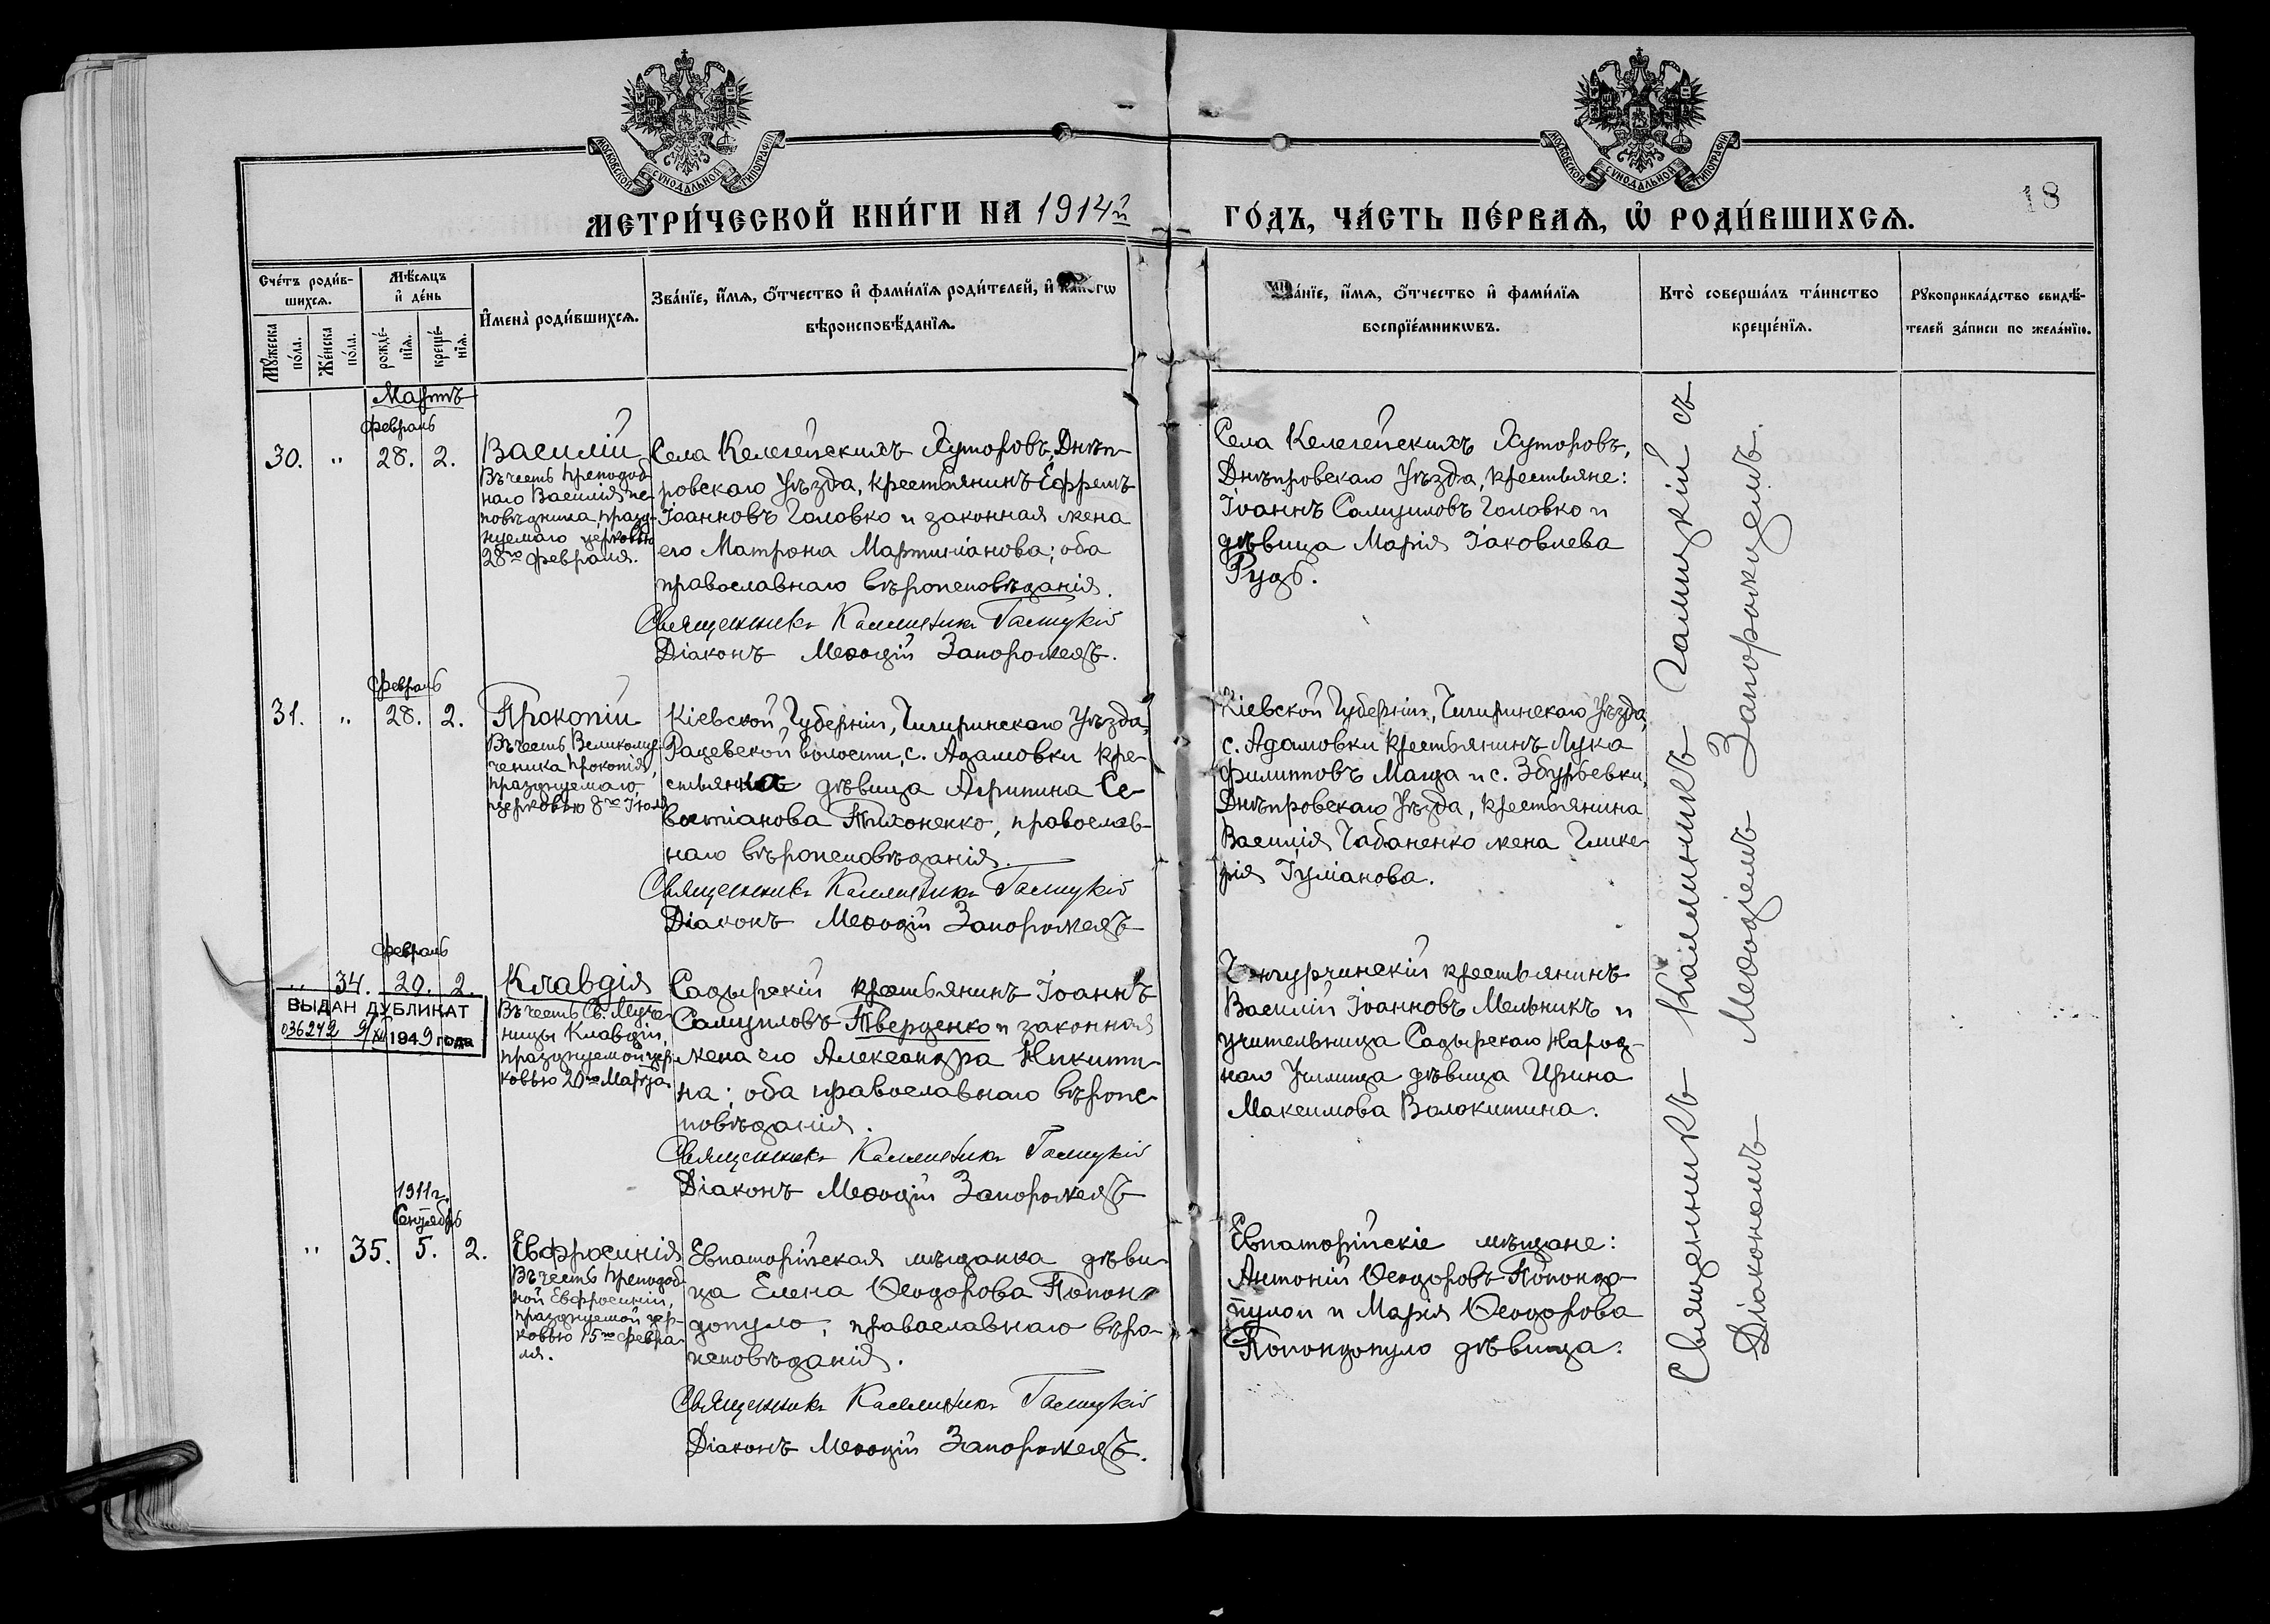 МОСКОВСКОЙ СѴНОДАЛЬНОЙ ТИПОГРАФІИ
МОСКОВСКОЙ СѴНОДАЛЬНОЙ ТИПОГРАФІИ
18
МЕТРИ́ЧЕСКОЙ КНИ́ГИ НА 1914й ГО́ДЪ, ЧА́СТЬ ПЕ́РВАѦ, Ѡ҆ РОДИ́ВШИХСѦ.
Сче́тъ роди́в-
шихсѧ.
Мꙋ́жеска
по́ла.
Же́нска
по́ла.
Мѣ́сѧцъ
и҆ де́нь
рожде́-
нїѧ.
креще́-
нїѧ.
И҆мена̀ роди́вшихсѧ.
Зва́нїе, и҆́мѧ, ѻ҆́тчество и҆ фами́лїѧ роди́телей, и҆ како́гѡ
вѣроисповѣ́данїѧ.
Зва́нїе, и҆́мѧ, ѻ҆́тчество и҆ фами́лїѧ
воспрїе́мникѡвъ.
Кто̀ соверша́лъ та́инство
креще́нїѧ.
Рꙋкоприкла́дство свидѣ́-
телей за́писи по жела́нїю.
Мартъ
Февраль
30. " 28. 2.
Василій
Въ честь Преподоб-
наго Василія ис-
повѣдника, празд-
нуемаго церковью
28го Февраля.
Села Келегейскихъ Хуторовъ, Днѣп-
ровскаго Уѣзда, крестьянинъ Ефремъ
Іоанновъ Головко и законная жена
его Матрона Мартиніанова; оба
православнаго вѣроисповѣданія.
Священникъ Каллиникъ Галицкій
Діаконъ Меѳодій Запорожецъ.
Села Келегейскихъ Хуторовъ,
Днѣпровскаго Уѣзда, крестьяне:
Іоаннъ Самуиловъ Головко и
дѣвица Марія Іаковлева
Рудь.
Февраль
31. " 28. 2.
Прокопій
Въ честь Великому-
ченика Прокопія,
празднуемаго
церковью 8го Іюля
Кіевской Губерніи, Чигиринскаго Уѣзда,
Рацевской волости, с. Адамовки кре-
стьянка дѣвица Агрипина Се-
вастіанова Тихоненко, православ-
наго вѣроисповѣданія.
Священникъ Каллиникъ Галицкій
Діаконъ Меѳодій Запорожецъ
Кіевской Губерніи, Чигиринскаго Уѣзда,
с. Адамовки крестьянинъ Лука
Филипповъ Магда и с. Збурьевки,
Днѣпровскаго Уѣзда, крестьянина
Василія Чабаненко жена Глике-
рія Іуліанова.
Февраль
" 34. 20. 2.
ВЫДАН ДУБЛИКАТ
036242 9/XI 1949 года
Клавдія
Въ честь Св. Муче-
ницы Клавдіи,
празднуемой цер-
ковью 20го Марта.
Садырскій крестьянинъ Іоаннъ
Самуиловъ Тверденко и законная
жена его Александра Никити-
на; оба православнаго вѣроис-
повѣданія.
Священникъ Каллиникъ Галицкій
Діаконъ Меѳодій Запорожецъ
крестьянинъ
Василій Іоанновъ Мельникъ и
учительница Садырскаго Народ-
наго Училища дѣвица Ирина
Максимова Волокитина.
1911г.
Сентябрь
" 35. 5. 2.
Евфросинія
Въ честь Преподоб-
ной Евфросиніи,
празднуемой цер-
ковью 15го Февра-
ля.
Евпаторійская мѣщанка дѣви-
ца Елена Ѳеодорова Попон-
допуло; православнаго вѣро-
исповѣданія.
Священникъ Каллиникъ Галицкій
Діаконъ Меѳодій Запорожецъ.
Евпаторійскіе мѣщане:
Антоній Ѳеодоровъ Попондо-
пулой и Марія Ѳеодорова
Попондопуло дѣвица.
Священникъ Каллиникъ Галицкій съ
Діакономъ Меѳодіемъ Запорожцемъ.